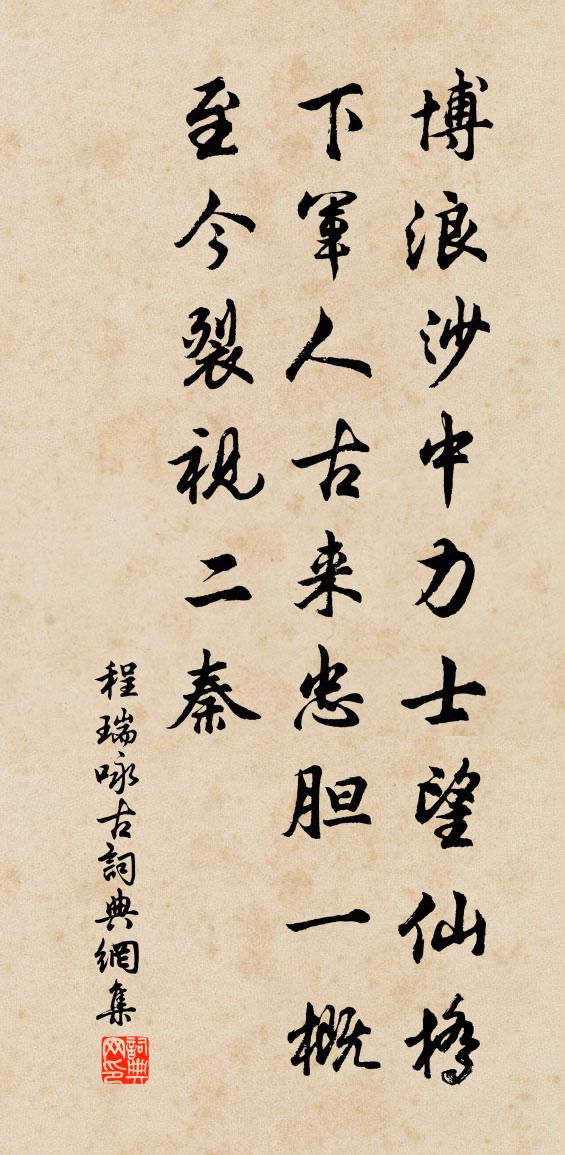 博浪沙中力士望仙橋
下軍人古来忠胆一概
至今裂視二秦
程瑞咏古詞典網集
詞典
网印